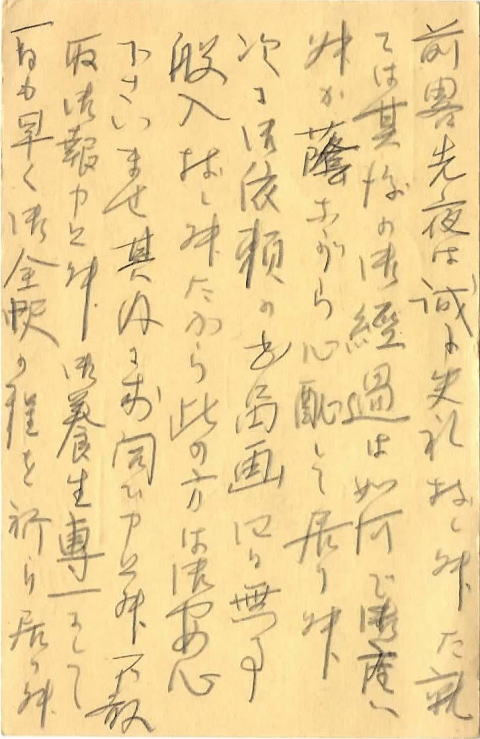 前略先夜は誠に失礼致しました就
ては其後の御經過は如何で御座い
ますか蔭ながら心配して居ります
次に御依頼の書画四無事
搬入致しましたから此の方は御安心
下さいませ其内に御伺ひ申上ます 不敢
取御報申上ます 御養生專一にして
一日も早く御全快の程を祈り居ます